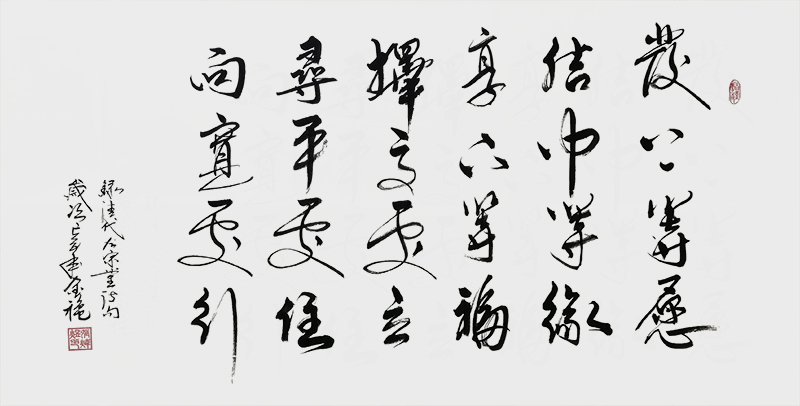 發上等愿
結中等緣
享下等福
擇高處立
尋平處住
向寬處行
錄清代左宗棠詩句
歲次己亥年